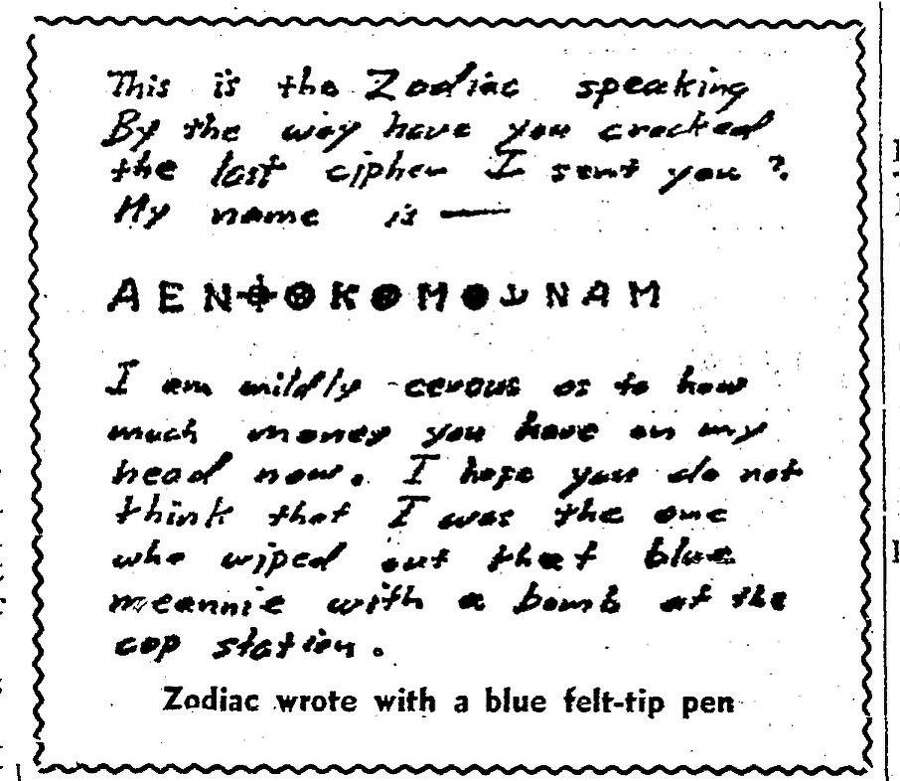 This is the Zodiac speaking
By the way have you cracked
the last cipher I sent you ?
My name is —
A E N ⌖ ⊗ K ● M ● ⚓ N A M
I am mildly cerous as to how
much money you have on my
head now. I hope you do not
think that I was the one
who wiped out that blue
meannie with a bomb at the
cop station.
Zodiac wrote with a blue felt-tip pen